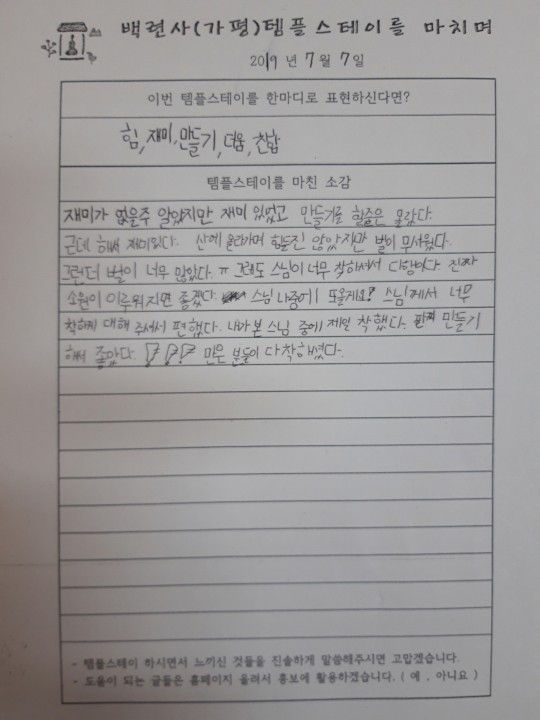 백련사(가평)템플스테이를 마치며
2019 년 7월 7일
이번 템플스테이를 한마디로 표현하신다면?
힘, 재미, 만들기, 더움, 찬합
템플스테이를 마친 소감
재미가 없을주 알았지만 재미 있었고 만들기를 할줄은 몰랐다.
근데 해써 재미있다. 산에 올라가며 힘들진 않았지만 벌이 무서웠다.
그런데 벌이 너무 많았다. ㅠ 그래도 스님이 너무 착하셔서 다행이다. 진짜
소원이 이루워지면 좋겠다. 스님 나중에 또올게요? 스님께서 너무
착하게 대해 주셔서 편했다. 내가 본 스님 중에 제일 착했다. 만들기
해써 좋았다. 만은 분들이 다 착해셨다.
- 템플스테이 하시면서 느끼신 것들을 진솔하게 말씀해주시면 고맙겠습니다.
- 도움이 되는 글들은 홈페이지 올려서 홍보에 활용하겠습니다. ( 예 , 아니요 )